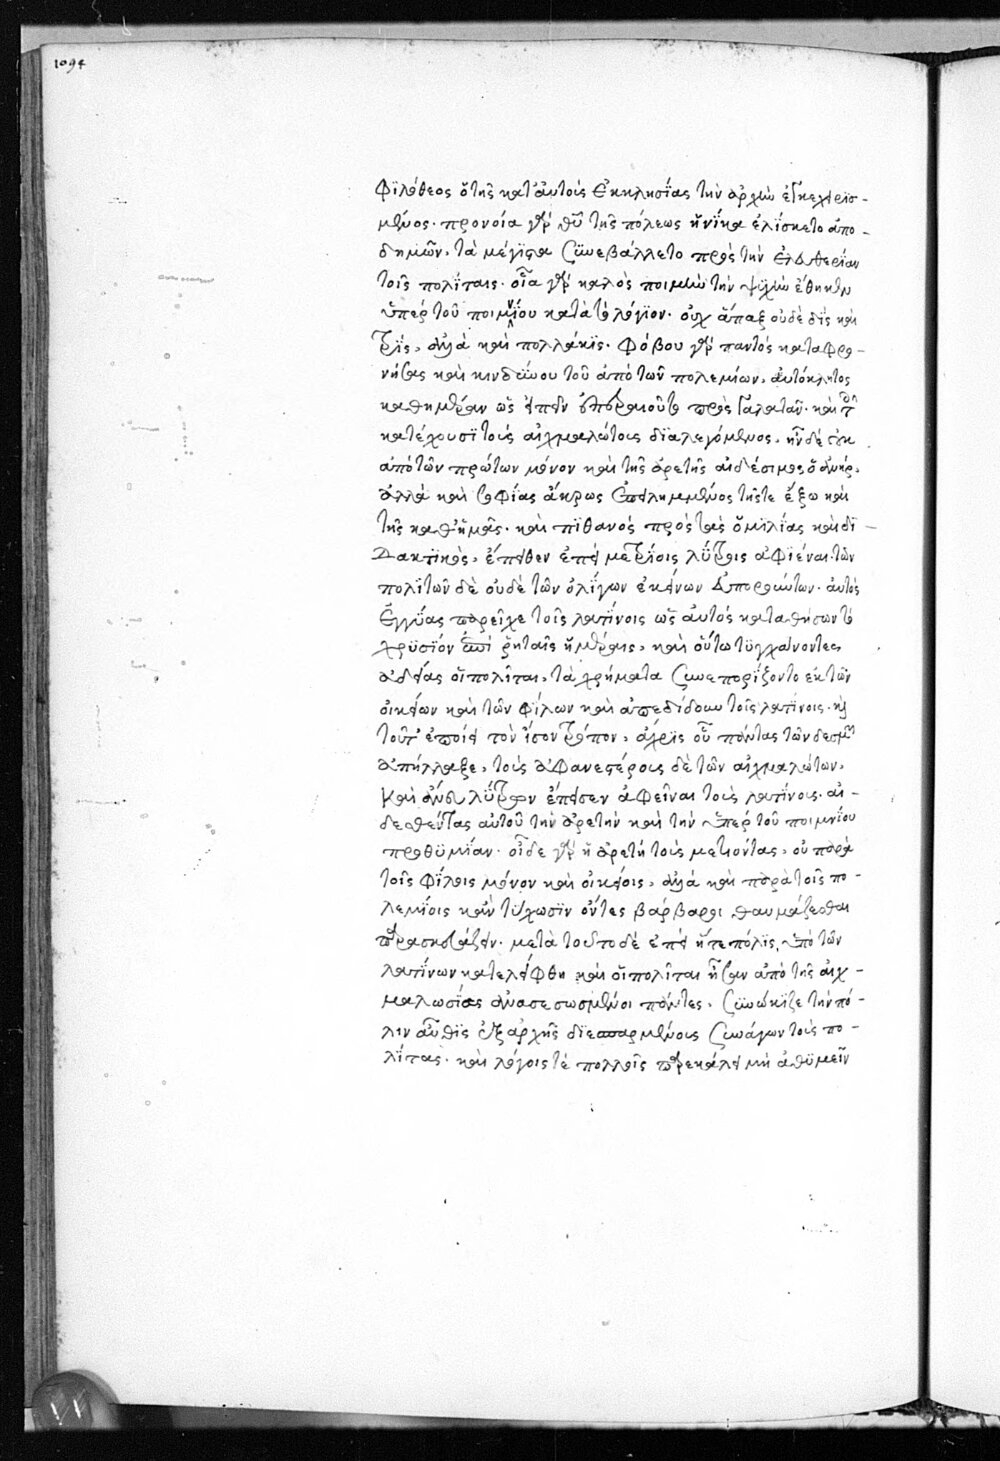 1094
Φϊλόθεος ὁ τῆς κατ' αὐτοὺς ἐκκλησΐας τὴν ἀρχὴν ἐγκεχειρϊσ-
μένος· προνοία γὰρ θῦ τῆς πόλεως ἡνΐκα ἑλίσκετο ἀπο-
δημῶν, τὰ μέγϊστα συνεβάλλετο πρὸς τὴν ἐλευθερίαν
τοῖς πολίταις· οἷα γὰρ καλὸς ποιμὴν τὴν ψϋχὴν ἐθηκεν
ὑπὲρ τοῦ ποιμνΐου κατὰ τὸ λόγϊον· οὐχ ἅπαξ οὐδὲ δὶς καὶ
τρὶς, ἀλλὰ καὶ πολλάκϊς· φόβου γὰρ παντὸς καταφρο-
νήσας καὶ κινδύνου τοῦ ἀπὸ τῶν πολεμίων, αὐτόκλητος
καθημέραν ὡς εἰπεῖν ἐπεραιοῦτο πρὸς Γαλατᾶν· καὶ τοῖς
κατέχουσϊ τοὺς αἰχμαλώτους δϊαλεγόμενος, ἦν δὲ οὐκ
ἀπὸ τῶν πρώτων μόνον καὶ τῆς ἀρετῆς αἰδέσιμος ὁ ἀνὴρ,
ἀλλὰ καὶ σοφίας ἄκρως ἐπειλημμένος τῆς τε ἔξω καὶ
τῆς καθ' ἡμᾶς· καὶ πϊθανὸς πρὸς τὰς ὁμϊλίας καὶ δϊ-
δακτϊκὸς, ἔπειθεν ἐπὶ μετρίοις λΰτροις ἀφϊέναι· τῶν
πολϊτῶν δὲ οὐδὲ τῶν ὀλΐγων ἐκείνων εὐπορούντων· αὐτὸς
ἐγγΰας παρεῖχε τοῖς λατΐνοις ὡς αὐτὸς καταθήσων τὸ
χρϋσΐον ἐπὶ ῥηταῖς ἡμέραις, καὶ οὕτω τϋγχάνοντες
ἀδείας οἱ πολῖται, τὰ χρήματα συνεπορΐζοντο ἐκ τῶν
οἰκείων καὶ τῶν φίλων καὶ ἀπεδίδουν τοῖς λατίνοις· καὶ
τοῦτ' ἐποίει τὸν ἴσον τρόπον, ἄχρϊς οὗ πάντας τῶν δεσμῶν
ἀπήλλαξε, τοὺς ἀφανεστέρους δὲ τῶν αἰχμαλώτων,
καὶ ἄνευ λΰτρων ἔπεισεν ἀφεῖναι τοὺς λατίνους· αἰ-
δεσθέντας αὐτοῦ τὴν ἀρετὴν καὶ τὴν ὑπὲρ τοῦ ποιμνίου
προθϋμΐαν· οἶδε γὰρ ἡ ἀρετὴ τοὺς μετιόντας, οὐ παρὰ
τοῖς φΐλοις μόνον καὶ οἰκείοις, ἀλλὰ καὶ παρὰ τοῖς πο-
λεμίοις κἂν τύχωσϊν ὄντες βάρβαροι θαυμάζεσθαι
παρασκευάζειν· μετὰ τοῦτο δὲ ἐπεὶ ἥ τε πόλϊς ὑπὸ τῶν
λατΐνων κατελείφθη καὶ οἱ πολῖται ἦσαν ἀπὸ τῆς αἰχ-
μαλωσΐας ἀνασεσωσμένοι πάντες, συνώκϊζε τὴν πό-
λιν αὖθϊς ἐξ ἀρχῆς δϊεσπαρμένους συνάγων τοὺς πο-
λίτας· καὶ λόγοις τὲ πολλοῖς παρεκάλει μὴ ἀθϋμεῖν